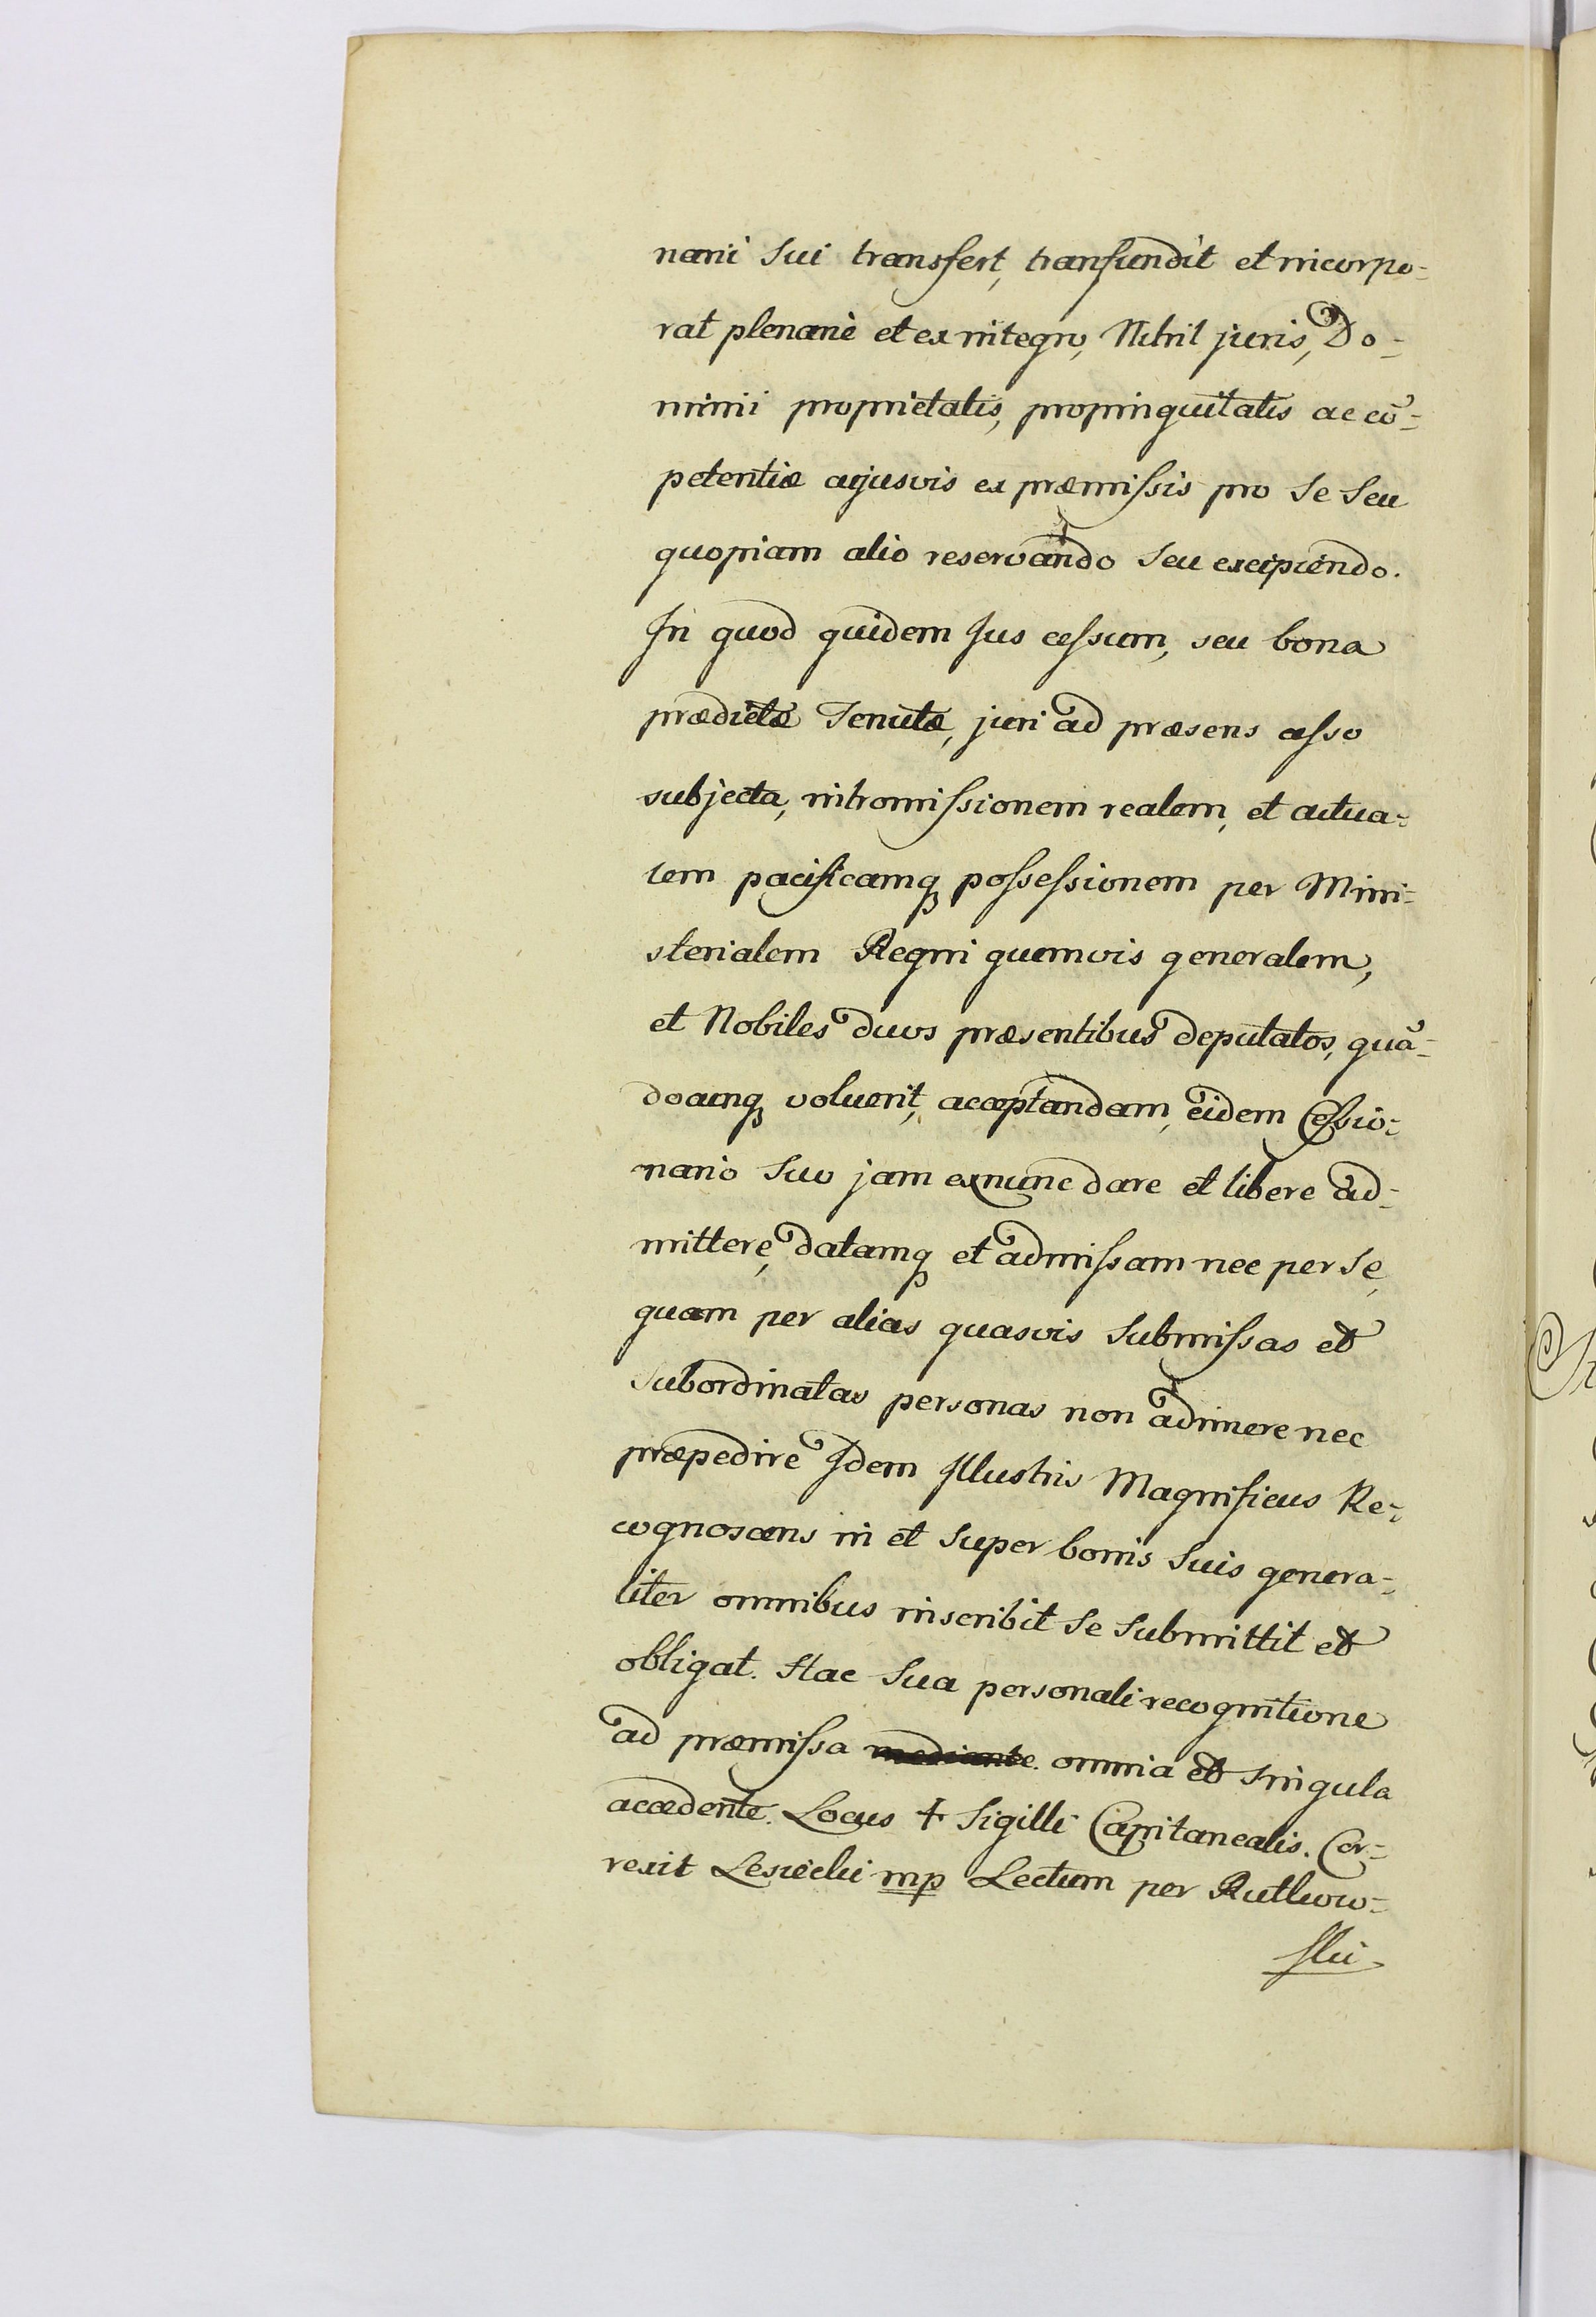 narii Sui transfert, transfundit et incorpo-
rat plenarie et ex integro, Nihil juris, Do-
minii proprietatis, propinquitatis ac cõ-
petentiæ cujusvis ex præmissis pro Se Seu
quopiam alio reservando Seu excipiendo.
In quod quidem Jus cessum, seu bona
prædictæ Tenutæ, juri ad præsens cesso
subjecta, intromissionem realem, et actua-
lem pacificamq possessionem per Mini-
sterialem Regni quemvis generalem,
et Nobiles duos præsentibus deputatos, quã-
docunq voluerit, acceptandam, eidem Cessio-
nario Suo jam exnunc dare et libere ad-
mittere, datamq et admissam nec per Se,
quam per alias quasvis Submissas et
Subordinatas personas non adimere nec
præpedire Idem Illustris Magnificus Re-
cognoscens in et Super bonis Suis genera-
liter omnibus inscribit Se Submittit et
obligat. Hac Sua personali recognitione
ad præmissa mediante omnia et singula
accedente. Locus + Sigilli Capitanealis. Cor-
rexit Lesiecki mp Lectum per Rutkow-
ski